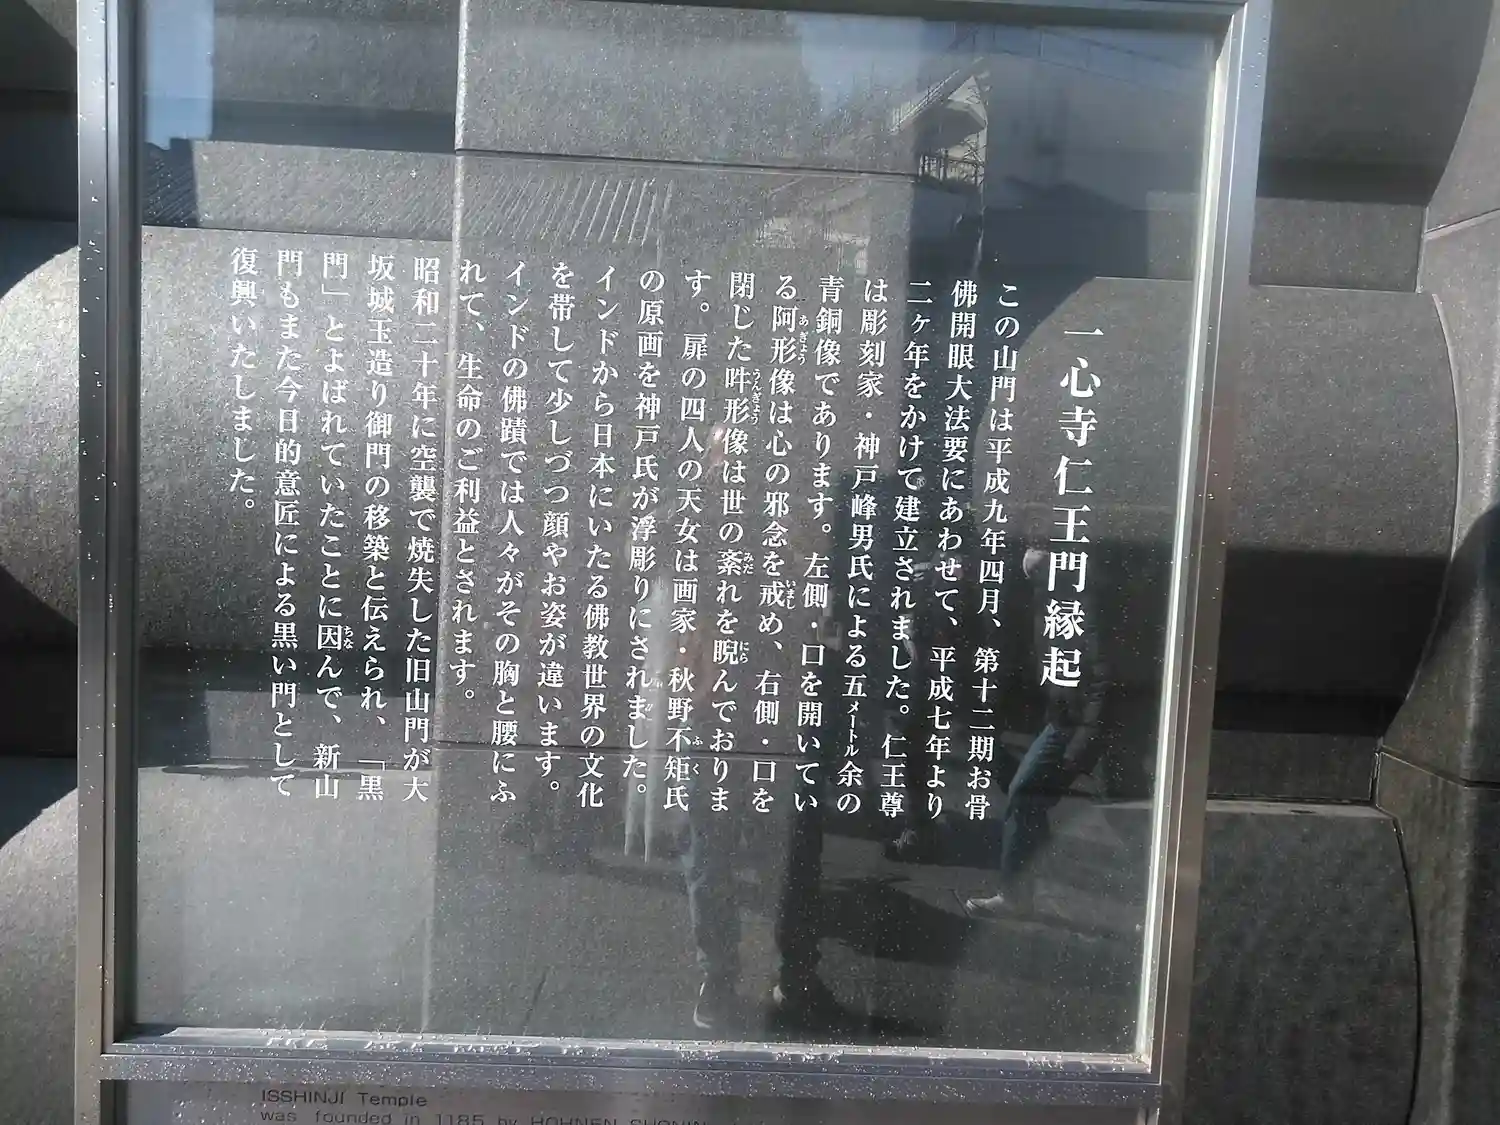 一心寺仁王門縁起
この山門は平成九年四月、第十二期お骨
佛開眼大法要にあわせて、平成七年より
二ヶ年をかけて建立されました。仁王尊
は彫刻家・神戸峰男氏による五メートル余の
青銅像であります。左側・口を開いてい
る阿形像は心の邪念を戒め、右側・口を
閉じた吽形像は世の紊れを睨んでおりま
す。扉の四人の天女は画家・秋野不矩氏
の原画を神戸氏が浮彫りにされました。
インドから日本にいたる佛教世界の文化
を帯して少しづつ顔やお姿が違います。
インドの佛蹟では人々がその胸と腰にふ
れて、生命のご利益とされます。
昭和二十年に空襲で焼失した旧山門が大
坂城玉造り御門の移築と伝えられ、「黒
門」とよばれていたことに因んで、新山
門もまた今日的意匠による黒い門として
復興いたしました。
ISSHINJI Temple
was founded in 1185 by HOHNEN SHONIN